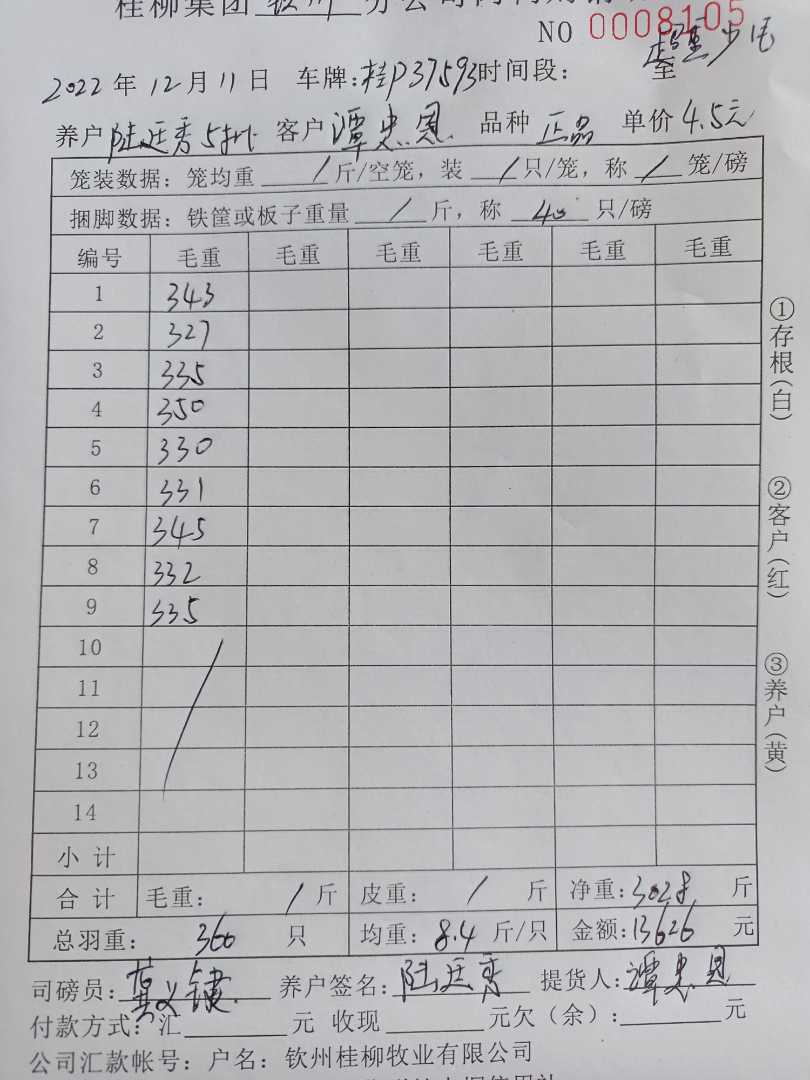 桂柳集团 钦州 分公司
NO 0008105
2022 年 12 月 11 日 车牌:桂P37593 时间段: 至
养户 陆廷秀5批 客户 谭忠恩 品种 正品 单价 4.5元
笼装数据: 笼均重 / 斤/空笼, 装 / 只/笼, 称 / 笼/磅
捆脚数据: 铁筐或板子重量 / 斤, 称 40 只/磅
编号 毛重 毛重 毛重 毛重 毛重 毛重
1 343
2 327
3 335
4 350
5 330
6 331
7 345
8 332
9 335
10
11
12
13
14
小 计
合 计 毛重: / 斤 皮重: / 斤 净重: 3028 斤
总羽重: 360 只 均重: 8.4 斤/只 金额: 13626 元
司磅员: 养户签名: 陆廷秀 提货人: 谭忠恩
付款方式: 汇 元 收现 元欠(余): 元
公司汇款帐号: 户名: 钦州桂柳牧业有限公司
①存根(白)
②客户(红)
③养户(黄)